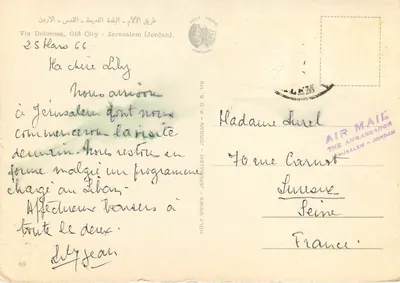 طريق الآلام - البلدة القديمة - القدس - الاردن
Via Dolorosa, Old City - Jerusalem (Jordan).
25 Mars 66
Ma chère Lily
Nous arrivons
à Jérusalem dont nous
commencerons la visite
demain. Nous restons en
forme malgré un programme
chargé au Liban.
Affectueux baisers à
toute les deux.
Jean
69
HOLY VIEWS - JERUSALEM - JORDAN - P.O.B. 116
HOLY VIEWS
LEM
AIR MAIL
THE AMBASSADOR
JERUSALEM - JORDAN
Madame Surel
70 rue Carnot
Suresnes
Seine
France.